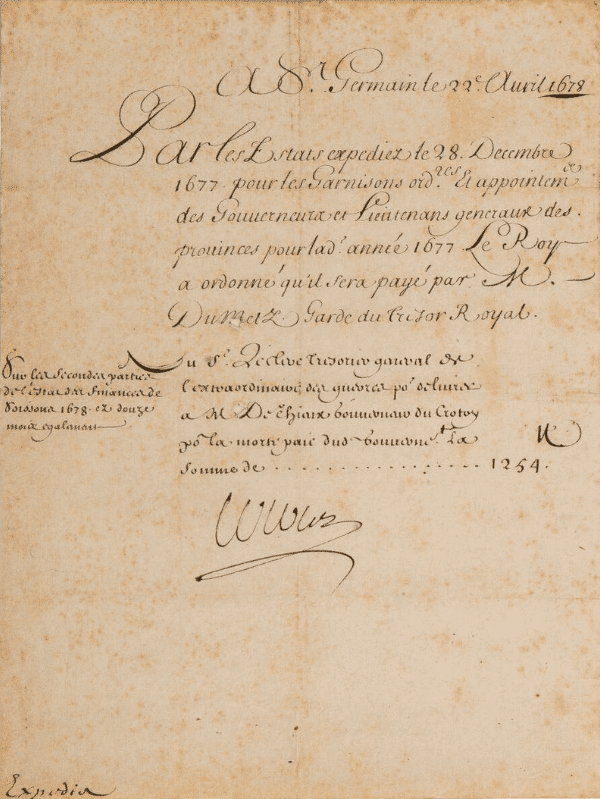 A S.^t Germain le 22^e. Avril 1678
Par les Estats expediez le 28. Decembre
1677 pour les Garnisons ord.^res Et appointem^s de
des Gouverneurs et Lieutenans generaux des.
provinces pour lad.^e année 1677. Le Roy
a ordonné qu'il sera payé par M.
Du Metz Garde du Tresor Royal.
Au S.^r Tresorier general de
l'extraordinaire des guerres po^r delivrer
a M De Gouverneur du Crotoy
po^r la morte paie dud Gouvernem.^t La
somme de . . . . . . . . . . . . . . . . . . 1254.
Sur les secondes parties
de l'estat des finances de
Soissons 1678. et douze
mois egalement
Expedia